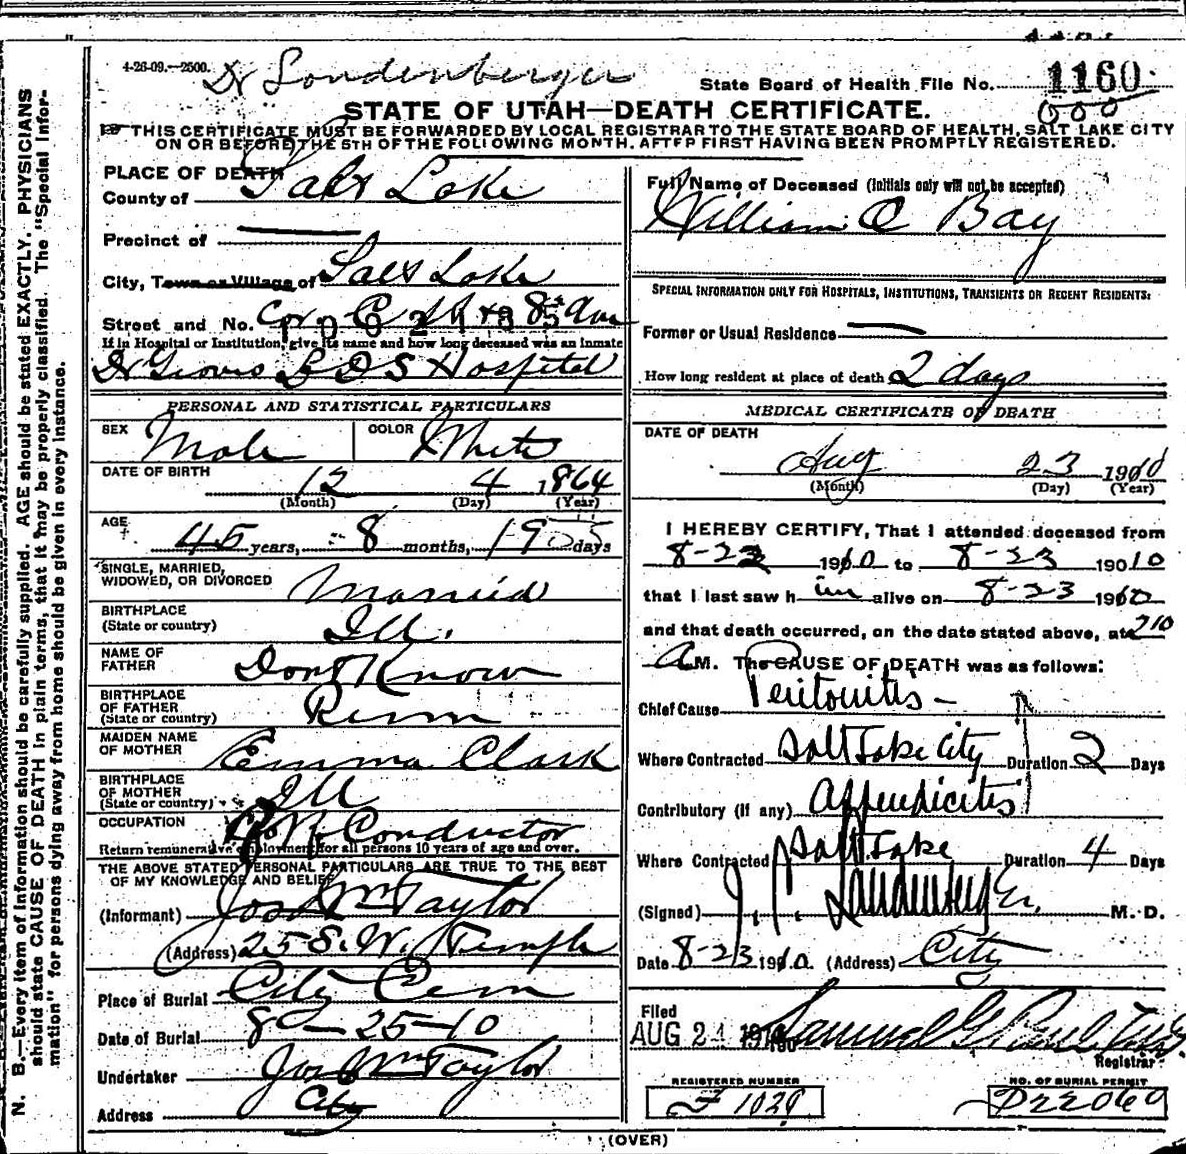 4-26-09.—2500.
Dr Landenberger
State Board of Health File No. 1160
000
STATE OF UTAH—DEATH CERTIFICATE.
THIS CERTIFICATE MUST BE FORWARDED BY LOCAL REGISTRAR TO THE STATE BOARD OF HEALTH, SALT LAKE CITY
ON OR BEFORE THE 5TH OF THE FOLLOWING MONTH, AFTER FIRST HAVING BEEN PROMPTLY REGISTERED.
N. B.—Every item of information should be carefully supplied. AGE should be stated EXACTLY. PHYSICIANS
should state CAUSE OF DEATH in plain terms, that it may be properly classified. The "Special Infor-
mation" for persons dying away from home should be given in every instance.
PLACE OF DEATH
County of Salt Lake
Precinct of —
City, Town or Village of Salt Lake
Street and No. Cor C St & 8th Ave
If in Hospital or Institution, give its name and how long deceased was an inmate
Dr Groves L D S Hospital
PERSONAL AND STATISTICAL PARTICULARS
SEX Male COLOR White
DATE OF BIRTH
12 4 1864
(Month) (Day) (Year)
AGE
45 years, 8 months, 19 days
SINGLE, MARRIED,
WIDOWED, OR DIVORCED Married
BIRTHPLACE
(State or country) Ill.
NAME OF
FATHER Dont Know
BIRTHPLACE
OF FATHER
(State or country) Penn
MAIDEN NAME
OF MOTHER Emma Clark
BIRTHPLACE
OF MOTHER
(State or country) Ill
OCCUPATION R. R. Conductor
Return remunerative employment for all persons 10 years of age and over.
THE ABOVE STATED PERSONAL PARTICULARS ARE TRUE TO THE BEST
OF MY KNOWLEDGE AND BELIEF
(Informant) Jos Wm Taylor
(Address) 25 S. W. Temple
Place of Burial City Cem
Date of Burial 8 — 25 — 10
Undertaker Jos Wm Taylor
Address City
Full Name of Deceased (Initials only will not be accepted)
William O Bay
SPECIAL INFORMATION ONLY FOR HOSPITALS, INSTITUTIONS, TRANSIENTS OR RECENT RESIDENTS:
Former or Usual Residence —
How long resident at place of death 2 days
MEDICAL CERTIFICATE OF DEATH
DATE OF DEATH
Aug 23 1910
(Month) (Day) (Year)
I HEREBY CERTIFY, That I attended deceased from
8-22 1910 to 8-23 19010
that I last saw h im alive on 8-23 1910
and that death occurred, on the date stated above, at 210
A M. The CAUSE OF DEATH was as follows:
Chief Cause Peritonitis —
Where Contracted Salt Lake City Duration 2 Days
Contributory (if any) Appendicitis
Where Contracted Salt Lake Duration 4 Days
(Signed) J. C. Landenberger, M. D.
Date 8-23 1910. (Address) City
Filed
AUG 24 1910 Samuel G Paul
Registrar
REGISTERED NUMBER NO. OF BURIAL PERMIT
F 1029 D22060
(OVER)